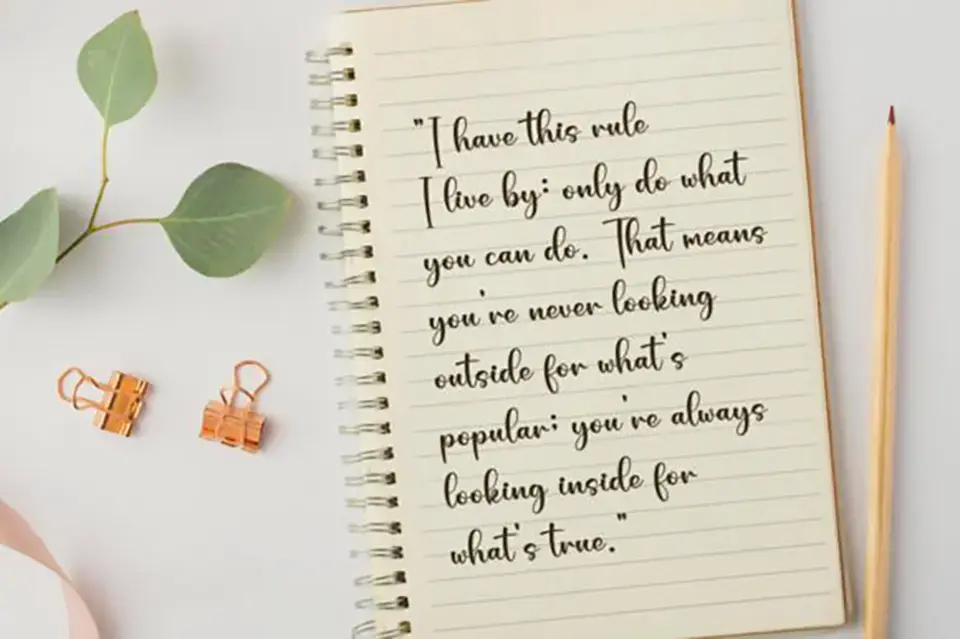 "I have this rule
I live by: only do what
you can do. That means
you're never looking
outside for what's
popular; you're always
looking inside for
what's true."